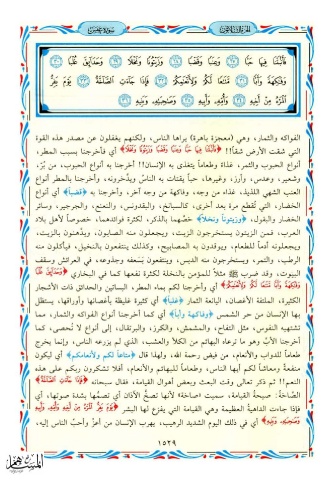 سورة عبس
الجزء الثلاثون
فَأَنۢبَتْنَا فِيهَا حَبًّا ۝٢٧ وَعِنَبًا وَقَضْبًا ۝٢٨ وَزَيْتُونًا وَنَخْلًا ۝٢٩ وَحَدَآئِقَ غُلْبًا ۝٣٠
وَفَٰكِهَةً وَأَبًّا ۝٣١ مَّتَٰعًا لَّكُمْ وَلِأَنْعَٰمِكُمْ ۝٣٢ فَإِذَا جَآءَتِ ٱلصَّآخَّةُ ۝٣٣ يَوْمَ يَفِرُّ
ٱلْمَرْءُ مِنْ أَخِيهِ ۝٣٤ وَأُمِّهِۦ وَأَبِيهِ ۝٣٥ وَصَٰحِبَتِهِۦ وَبَنِيهِ ۝٣٦
الفواكه والثمار، وهي (معجزة باهرة) يراها الناس، ولكنهم يغفلون عن مصدر هذه القوة
التي شقت الأرض شقاً!! ﴿فَأَنۢبَتْنَا فِيهَا حَبًّا وَعِنَبًا وَقَضْبًا وَزَيْتُونًا وَنَخْلًا﴾ أي فأخرجنا بسبب المطر،
أنواع الحبوب والثمر، غذاءً وطعاماً يتغذى به الإنسان!! أخرجنا به أنواع الحبوب، من بُرّ،
وشعير، وعدس، وأرز، وغيرها، حباً يقتات به الناسُ ويدَّخرونه، وأخرجنا بالمطر أنواع
العنب الشهي اللذيذ، غذاء من وجه، وفاكهة من وجه آخر، وأخرجنا به ﴿قضباً﴾ أي أنواع
الخضار، التي تُقطع مرة بعد أخرى، كالسبانخ، والبقدونس، والنعنع، والجرجير، وسائر
الخضار والبقول، ﴿وزيتوناً ونخلاً﴾ خصَّهما بالذكر، لكثرة فوائدهما، خصوصاً لأهل بلاد
العرب، فمن الزيتون يستخرجون الزيت، ويجعلون منه الصابون، ويدَّهنون بالزيت،
ويجعلونه أدماً للطعام، ويوقدون به المصابيح، وكذلك ينتفعون بالنخيل، فيأكلون منه
الرطب، والتمر، ويستخرجون منه الدبس، وينتفعون بسَعفه وجذوعه، في العرائش وسقف
البيوت، وقد ضرب ﷺ مثلاً للمؤمن بالنخلة لكثرة نفعها كما في البخاري ﴿وَحَدَآئِقَ غُلْبًا
وَفَٰكِهَةً وَأَبًّا مَّتَٰعًا لَّكُمْ وَلِأَنْعَٰمِكُمْ﴾ أي وأخرجنا لكم بماء المطر، البساتين والحدائق ذات الأشجار
الكثيرة، الملتفة الأغصان، اليانعة الثمار ﴿غلباً﴾ أي كثيرة غليظة بأغصانها وأوراقها، يستظل
بها الإنسان من حر الشمس ﴿وفاكهة وأباً﴾ أي كما أخرجنا أنواع الفواكه والثمار، مما
تشتهيه النفوس، مثل التفاح، والمشمش، والكرز، والبرتقال، إلى أنواع لا تُحصى، كما
أخرجنا الأبَّ وهو ما ترعاه البهائم من الكلأ والعشب، الذي لم يزرعه الناس، وإنما يخرج
طعاماً للدواب والأنعام، من فيض رحمة الله، ولهذا قال ﴿متاعاً لكم ولأنعامكم﴾ أي ليكون
منفعة ومعاشاً لكم أيها الناس، وطعاماً للبهائم والأنعام، أفلا تشكرون ربكم على هذه
النعم!! ثم ذكر تعالى وقت البعث وبعض أهوال القيامة، فقال سبحانه ﴿فَإِذَا جَآءَتِ ٱلصَّآخَّةُ﴾
الصَّاخة: صيحة القيامة، سميت «صاخة» لأنها تصخُّ الآذان أي تصمُّها بشدة صوتها، أي
فإذا جاءت الداهية العظيمة وهي القيامة التي يفزع لها البشر ﴿يَوْمَ يَفِرُّ ٱلْمَرْءُ مِنْ أَخِيهِ وَأُمِّهِۦ وَأَبِيهِ
وَصَٰحِبَتِهِۦ وَبَنِيهِ﴾ أي في ذلك اليوم الشديد الرهيب، يهرب الإنسان من أعزِّ وأحبِّ الناس إليه،
١٥٢٩